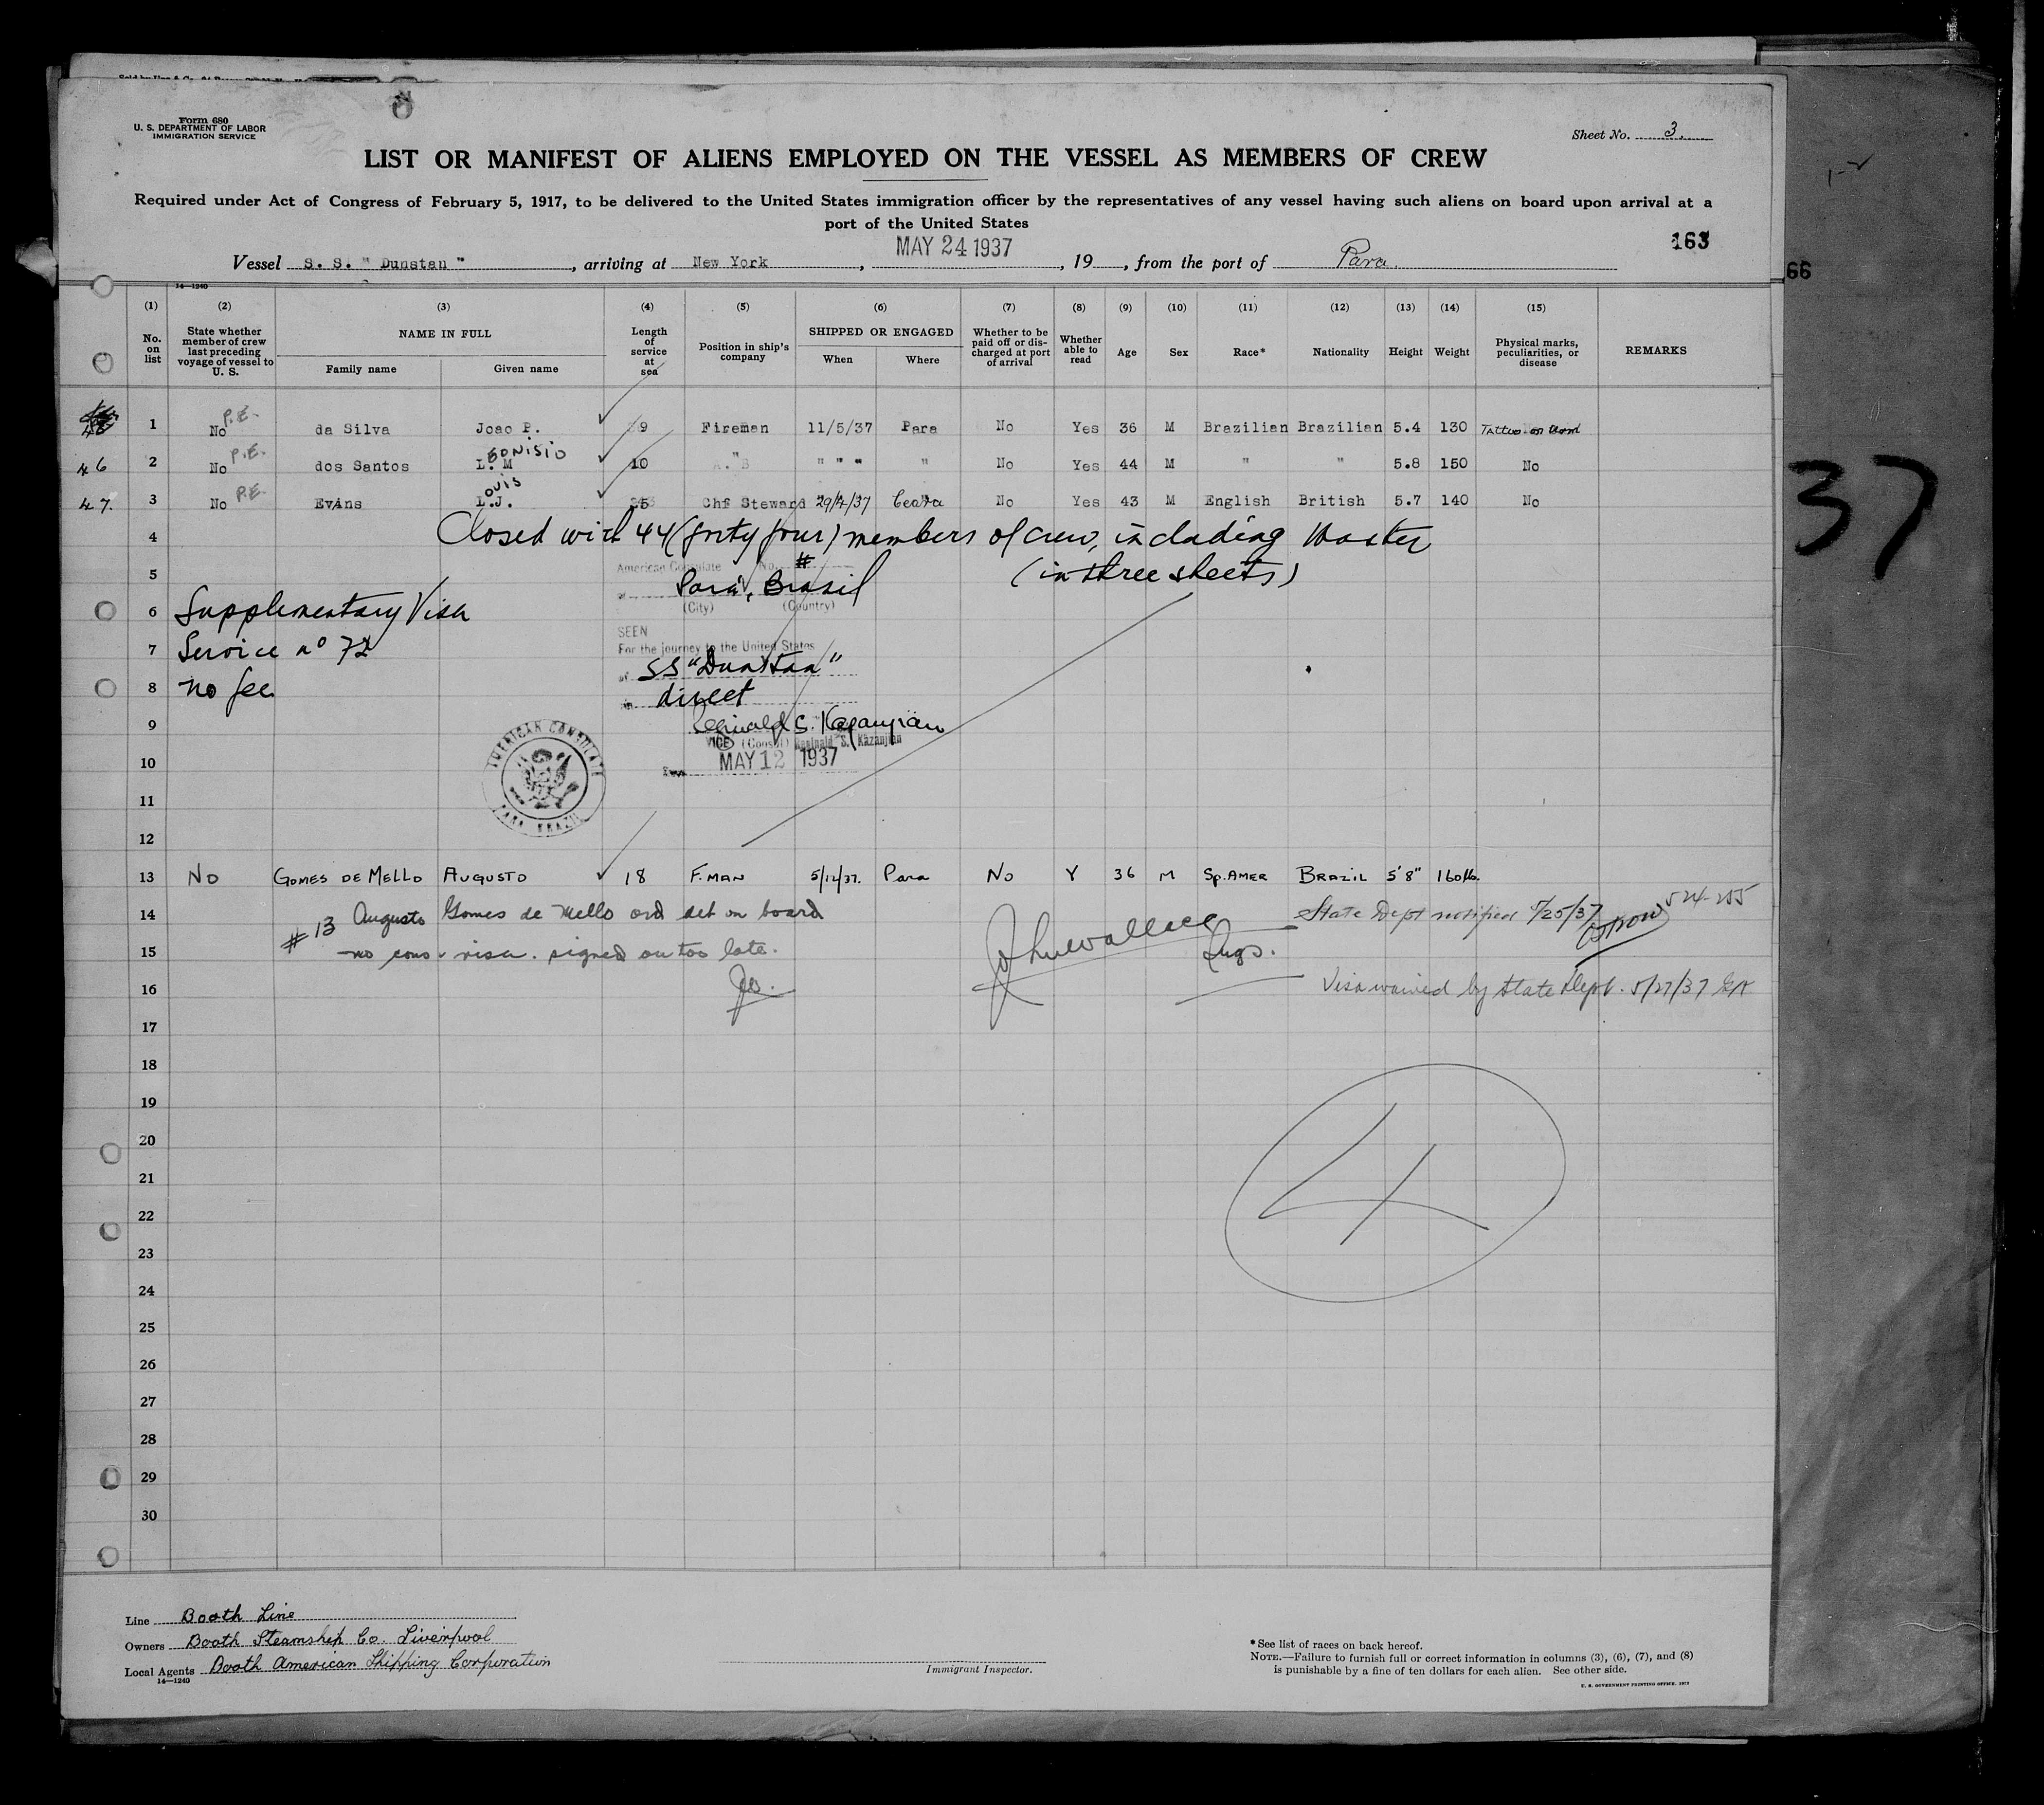 Form 680
U. S. DEPARTMENT OF LABOR
IMMIGRATION SERVICE
Sheet No. 3.
LIST OR MANIFEST OF ALIENS EMPLOYED ON THE VESSEL AS MEMBERS OF CREW
Required under Act of Congress of February 5, 1917, to be delivered to the United States immigration officer by the representatives of any vessel having such aliens on board upon arrival at a
port of the United States
163
Vessel S. S. " Dunstan ", arriving at New York, MAY 24 1937, 19, from the port of Para.
66
14—1240
(1) (2) (3) (4) (5) (6) (7) (8) (9) (10) (11) (12) (13) (14) (15)
No. on list
State whether member of crew last preceding voyage of vessel to U. S.
NAME IN FULL
Family name
Given name
Length of service at sea
Position in ship's company
SHIPPED OR ENGAGED
When
Where
Whether to be paid off or discharged at port of arrival
Whether able to read
Age
Sex
Race*
Nationality
Height
Weight
Physical marks, peculiarities, or disease
REMARKS
1 No P.E. da Silva Joao P. 9 Fireman 11/5/37 Para No Yes 36 M Brazilian Brazilian 5.4 130 Tattoo on
46 2 No P.E. dos Santos L. EONISIO M 10 " " " " " No Yes 44 M " " 5.8 150 No
47. 3 No P.E. Evans L. OUIS J. 25 Chf Steward 29/4/37 Ceara No Yes 43 M English British 5.7 140 No
37
4 Closed with 44 (forty four) members of crew, including Master
5 (in three sheets)
American Consulate No. #
Para, Brasil
(City) (Country)
6 Supplementary Visa
SEEN
7 Service nº 72
For the journey to the United States
of SS "Dunstan"
8 no fee
direct
9 Reginald S. Kazanjian
VICE (Consul) Reginald S. Kazanjian
10 MAY 12 1937
AMERICAN CONSULATE
PARA BRAZIL
11
12
13 No GOMES DE MELLO AUGUSTO 18 F.MAN 5/12/37. Para No Y 36 M Sp. AMER BRAZIL 5'8" 160 lb.
14 #13 Augusto Gomes de Mello ord det on board
State Dept notified 5/25/37
15 no cons. visa. signed on too late.
John Wallace
Insp.
16 Visa waived by State Dept. 5/27/37
17
18
19
20
21
22
23
24
25
26
27
28
29
30
4
Line Booth Line
Owners Booth Steamship Co. Liverpool
Local Agents Booth American Shipping Corporation
14—1240
Immigrant Inspector.
*See list of races on back hereof.
NOTE.—Failure to furnish full or correct information in columns (3), (6), (7), and (8)
is punishable by a fine of ten dollars for each alien. See other side.
U. S. GOVERNMENT PRINTING OFFICE